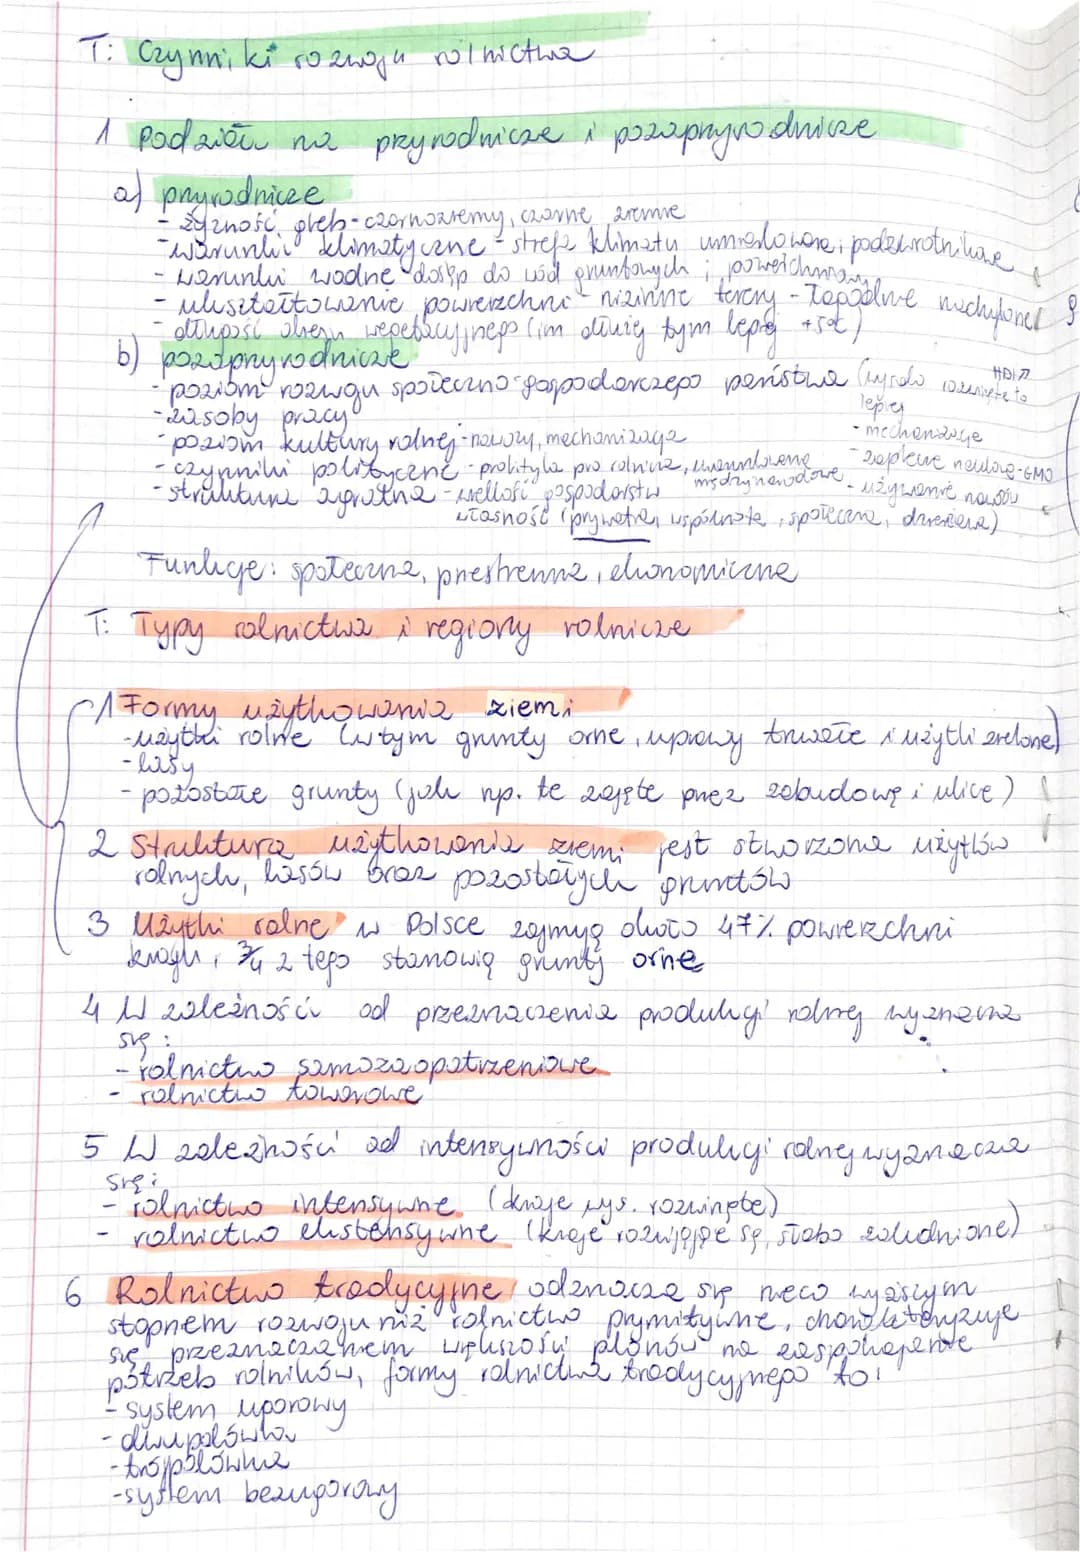 T: Czynniki rozwoju rolnictwa
1 Podział na przyrodnicze i pozaprzyrodnicze
a) przyrodnicze
- żyzność gleb - czarnoziemy, czarne ziemie
- warunki klimatyczne - strefa klimatu umiarkowana i podzwrotnikowe
- warunki wodne dostęp do wód gruntowych i powierzchniowych
- ukształtowanie powierzchni - nizinne tereny - łagodnie nachylone
- długość okresu wegetacyjnego (im dłużej tym lepiej +5°C)
b) pozaprzyrodnicze
- poziom rozwoju społeczno-gospodarczego państwa (wysoko rozwinięte to lepiej HDI↗
- zasoby pracy
- poziom kultury rolnej - nawozy, mechanizacja
- mechanizacje
- czynniki polityczne - polityka pro rolnicza, uwarunkowane międzynarodowe
- zaplecze naukowe - GMO
- używanie nawozów
- struktura agrarna - wielkość gospodarstw
własność (prywatna, wspólnota, społeczna, dzierżawa)
Funkcje: społeczna, przestrzenna, ekonomiczna
T: Typy rolnictwa i regiony rolnicze
1 Formy użytkowania ziemi
- użytki rolne (w tym grunty orne, uprawy trwałe i użytki zielone)
- lasy
- pozostałe grunty (jak np. te zajęte przez zabudowę i ulice)
2 Struktura użytkowania ziemi jest stworzona użytków
rolnych, lasów oraz pozostałych gruntów
3 Użytki rolne w Polsce zajmują około 47% powierzchni
kraju, 3/4 z tego stanowią grunty orne
4 W zależności od przeznaczenia produkcji rolnej wyznacza
się:
- rolnictwo samozaopatrzeniowe
- rolnictwo towarowe
5 W zależności od intensywności produkcji rolnej wyznacza
się:
- rolnictwo intensywne (kraje wys. rozwinięte)
- rolnictwo ekstensywne (kraje rozwijające się, słabo zaludnione)
6 Rolnictwo tradycyjne odznacza się nieco wyższym
stopnem rozwoju niż rolnictwo prymitywne, charakteryzuje
się przeznaczaniem większości plonów na zaspokajanie
potrzeb rolników, formy rolnictwa tradycyjnego to:
- system ugorowy
- dwupolówka
- trójpolówka
- system bezugorowy